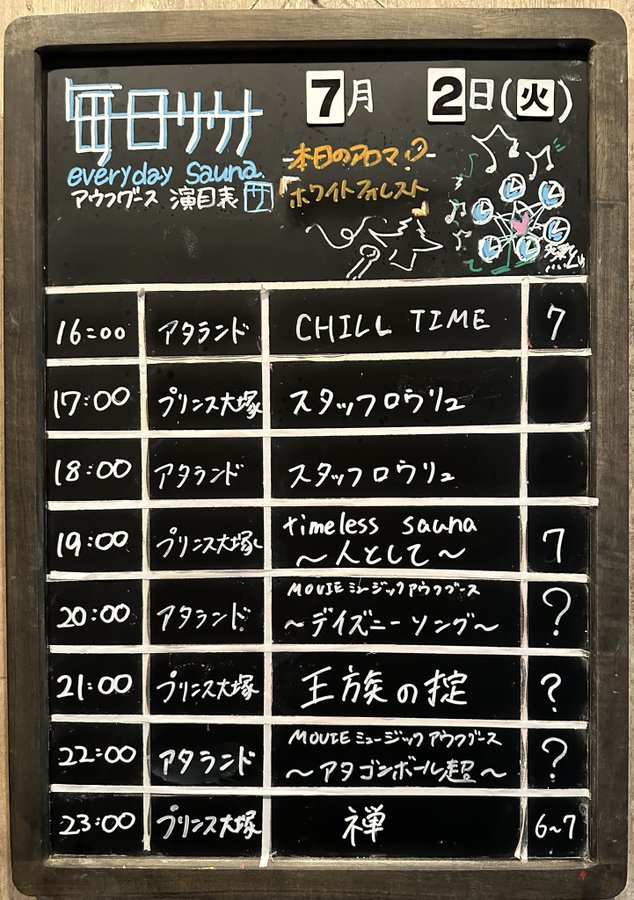 毎日サウナ
7月 2日(火)
everyday sauna.
アウフグース 演目表 サ
本日のアロマ
「ホワイトフォレスト」
16:00 アタランド CHILL TIME 7
17:00 プリンス大塚 スタッフロウリュ
18:00 アタランド スタッフロウリュ
19:00 プリンス大塚 timeless sauna
～人として～ 7
20:00 アタランド MOVIEミュージックアウフグース
～デイズニーソング～ ?
21:00 プリンス大塚 王族の掟 ?
22:00 アタランド MOVIEミュージックアウフグース
～アタゴンボール超～ ?
23:00 プリンス大塚 禅 6~7